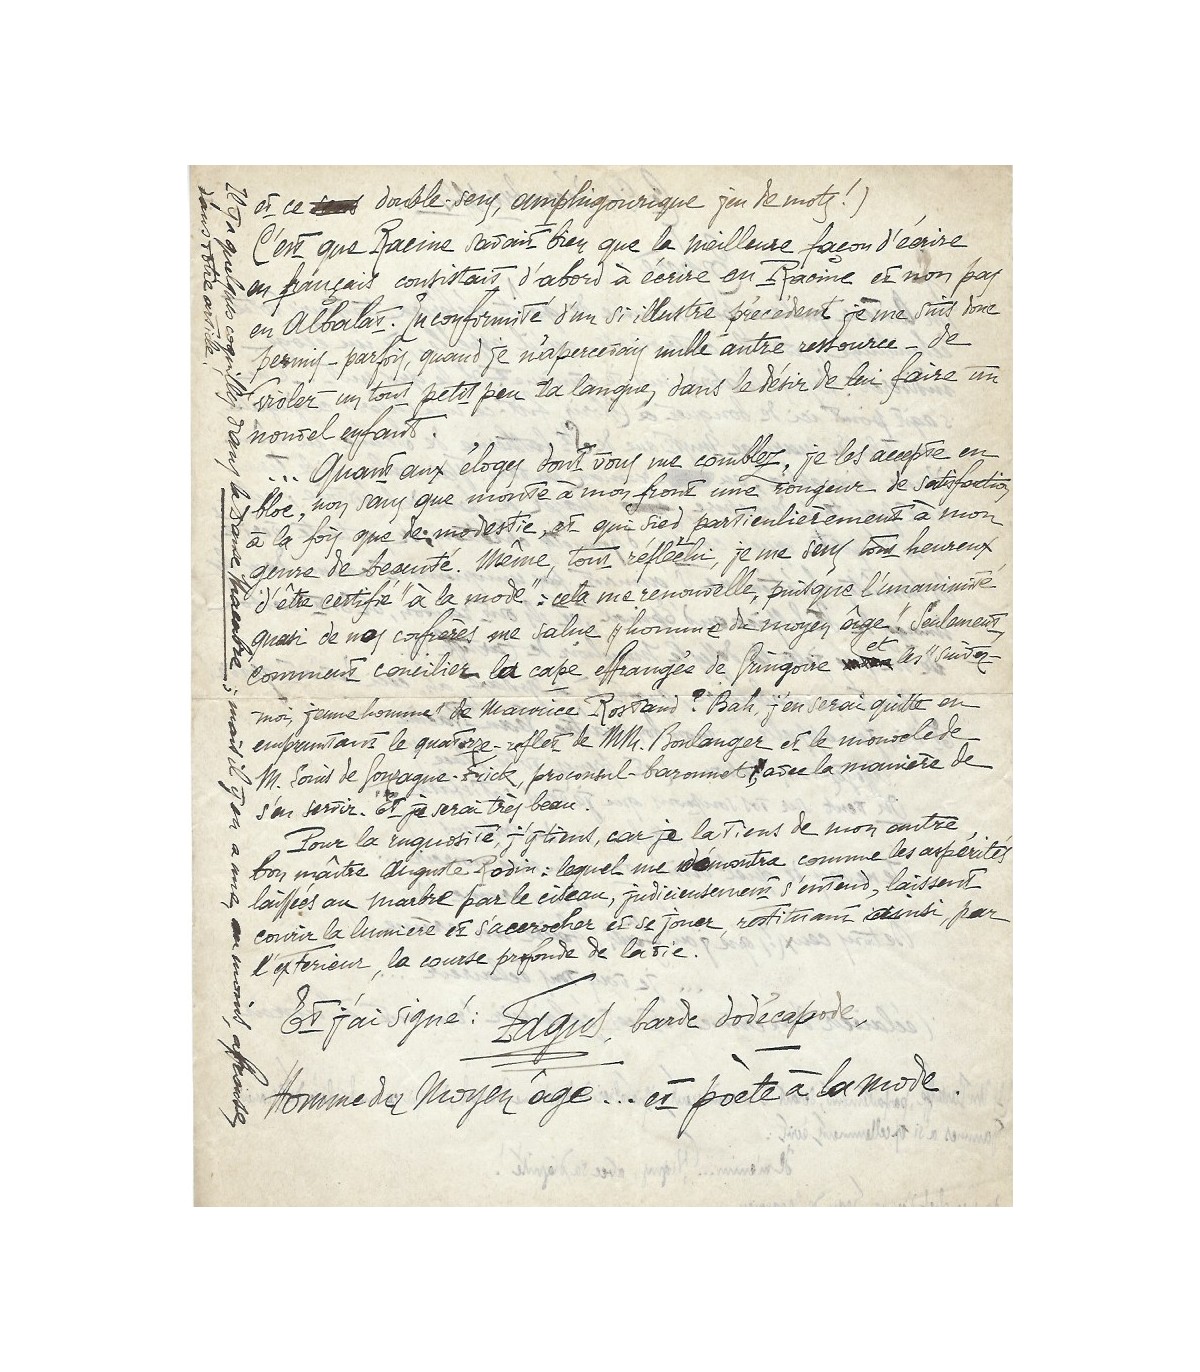 et ce sens double-sens, amphigourique jeu de mots!)
C'est que Racine savait bien que la meilleure façon d'écrire
en français consistait d'abord à écrire en Racine et non pas
en Albalat. En conformité d'un si illustre précédent je me suis donc
permis - parfois, quand je n'apercevais nulle autre ressource - de
violer un tout petit peu la langue, dans le désir de lui faire un
nouvel enfant.
... Quant aux éloges dont vous me comblez, je les accepte en
bloc, non sans que monte à mon front une rougeur de satisfaction
à la fois que de modestie, et qui sied particulièrement à mon
genre de beauté. Même, tout réfléchi, je me sens tout heureux
d'être certifié "à la mode": cela me renouvelle, puisque l'unanimité
quasi de nos confrères me salue "homme du moyen âge". Seulement,
comment concilier la cape effrangée de Gringoire et les "suivez-
moi, jeune homme" de Maurice Rostand? Bah, j'en serai quitte en
empruntant le quatorze-reflets de MM. Boulanger et le monocle de
M. Louis de Gonzague-Frick, proconsul-baronnet, avec la manière de
s'en servir. Et je serai très beau.
Pour la rugosité, j'y tiens, car je la tiens de mon autre
bon maître Auguste Rodin: lequel me démontra comme les aspérités
laissées au marbre par le ciseau, judicieusement s'entend, laissent
courir la lumière et s'accrocher et se jouer, restituant ainsi, par
l'extérieur, la course profonde de la vie.
Et j'ai signé: Fagus, barde dodécapode,
Homme du Moyen âge... et poète à la mode.
Il y a quelques coquilles dans la Danse Macabre; mais il y en a une, au moins, affreuse,
dans votre article.